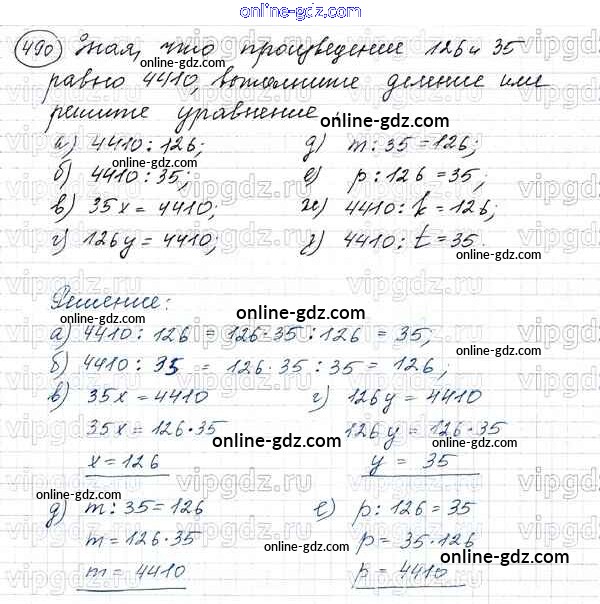 online-gdz.com
490 Зная, что произведение 126 и 35
равно 4410, выполните деление или
решите уравнение
online-gdz.com
а) 4410 : 126; д) m : 35 = 126;
online-gdz.com
б) 4410 : 35; е) p : 126 = 35;
в) 35x = 4410; ж) 4410 : k = 126;
online-gdz.com
г) 126y = 4410; з) 4410 : t = 35.
online-gdz.com
Решение:
online-gdz.com
а) 4410 : 126 = 126·35 : 126 = 35;
б) 4410 : 35 = 126·35 : 35 = 126;
online-gdz.com
в) 35x = 4410 г) 126y = 4410
35x = 126·35 126y = 126·35
online-gdz.com
x = 126 y = 35
online-gdz.com
online-gdz.com
д) m : 35 = 126 е) p : 126 = 35
online-gdz.com
m = 126·35 p = 35·126
online-gdz.com
m = 4410 p = 4410
online-gdz.com
vipgdz.ru